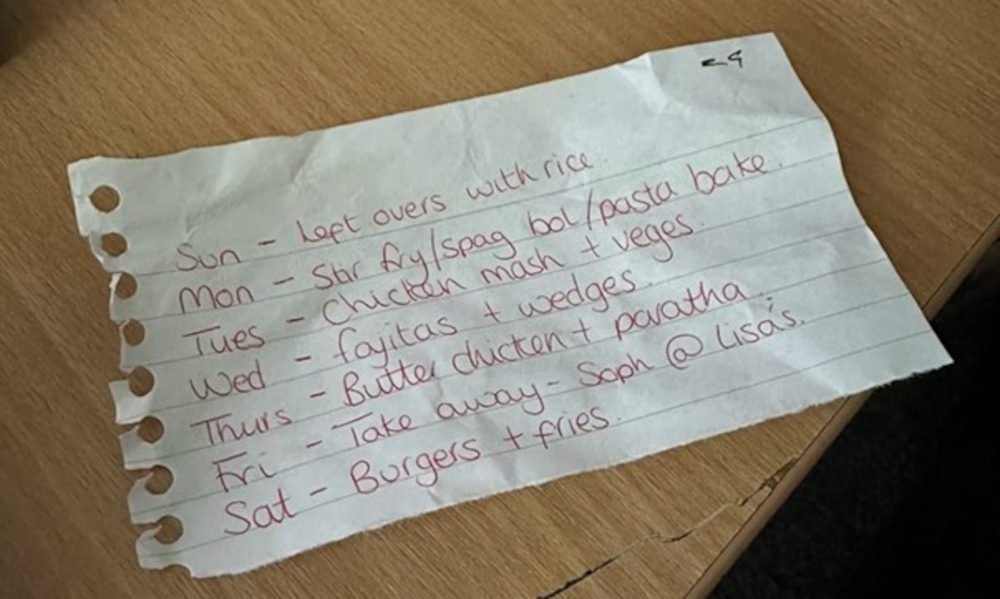 Sun - Left overs with rice.
Mon - Stir fry/spag bol/pasta bake.
Tues - Chicken mash + veges.
Wed - fajitas + wedges.
Thurs - Butter chicken + paratha
Fri - Take away - Soph @ Lisa's.
Sat - Burgers + fries.